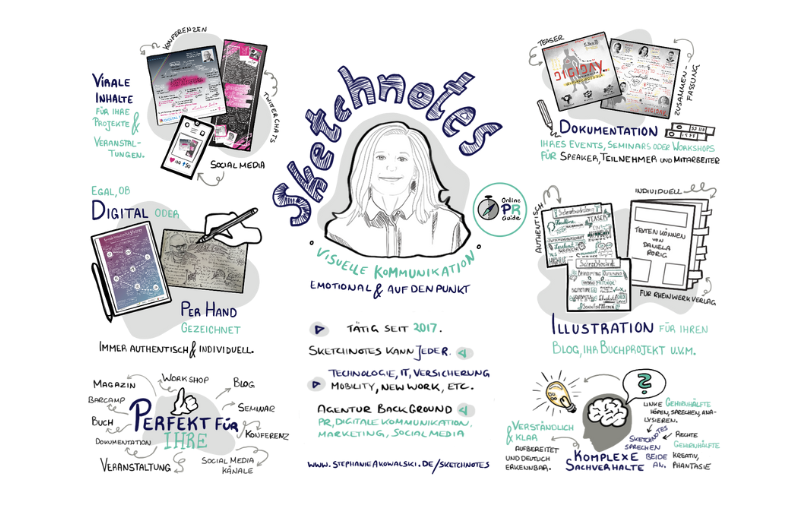 KONFERENZEN
VIRALE
INHALTE
FÜR IHRE
PROJEKTE &
VERANSTAL-
TUNGEN.
TWITTERCHATS
SOCIAL MEDIA
EGAL, OB
DIGITAL ODER
PER HAND
GEZEICHNET
IMMER AUTHENTISCH & INDIVIDUELL.
MAGAZIN
WORKSHOP
BLOG
BARCAMP
SEMINAR
BUCH
PERFEKT FÜR
IHRE
KONFERENZ
DOKUMENTATION
VERANSTALTUNG
SOCIAL MEDIA
KANÄLE
Sketchnotes
Online
PR
Guide
VISUELLE KOMMUNIKATION
EMOTIONAL & AUF DEN PUNKT
TÄTIG SEIT 2017.
SKETCHNOTES KANN JEDER.
TECHNOLOGIE, IT, VERSICHERUNG
MOBILITY, NEW WORK, ETC.
AGENTUR BACKGROUND
PR, DIGITALE KOMMUNIKATION.
MARKETING, SOCIAL MEDIA
WWW.STEPHANIEAKOWALSKI.DE/SKETCHNOTES
TEASER
DIGIDAY
DIGIDAY
ZUSAMMEN-
FASSUNG
DOKUMENTATION
IHRES EVENTS, SEMINARS ODER WORKSHOPS
FÜR SPEAKER, TEILNEHMER UND MITARBEITER
AUTHENTISCH
INDIVIDUELL
TEXTEN KÖNNEN
VON
DANIELA
RORIG
FÜR RHEINWERK VERLAG
ILLUSTRATION FÜR IHREN
BLOG, IHR BUCHPROJEKT U.V.M.
?
VERSTÄNDLICH
& KLAR
AUFBEREITET
UND DEUTLICH
ERKENNBAR.
KOMPLEXE
SACHVERHALTE
LINKE GEHIRNHÄLFTE
HÖREN, SPRECHEN, ANA-
LYSIEREN.
SKETCHNOTES
SPRECHEN
BEIDE
AN.
RECHTE
GEHIRNHÄLFTE
KREATIV,
PHANTASIE